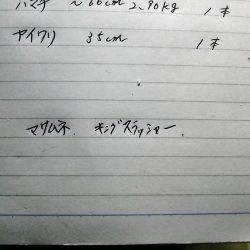 ハマチ ～60cm 2.90kg 1本
ヤイワリ 35cm 1本
マサムネ. キングスラッシャー.